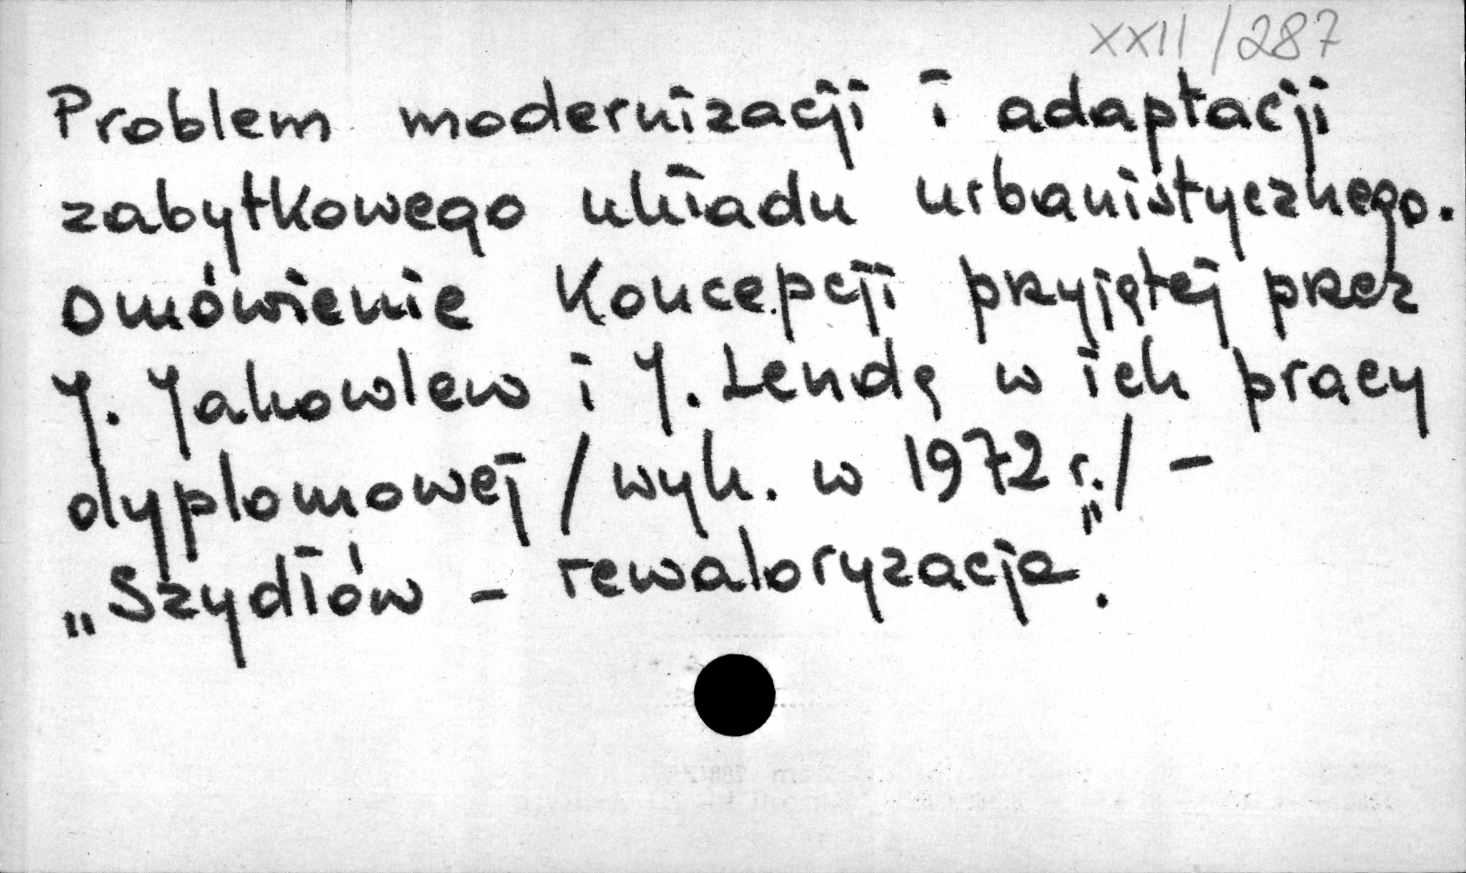 XXII/287
Problem modernizacji i adaptacji
zabytkowego układu urbanistycznego.
Omówienie koncepcji przyjętej przez
J. Jakowlew i J. Lendę w ich pracy
dyplomowej /wyk. w 1972 r./ -
„Szydłów - rewaloryzacja".